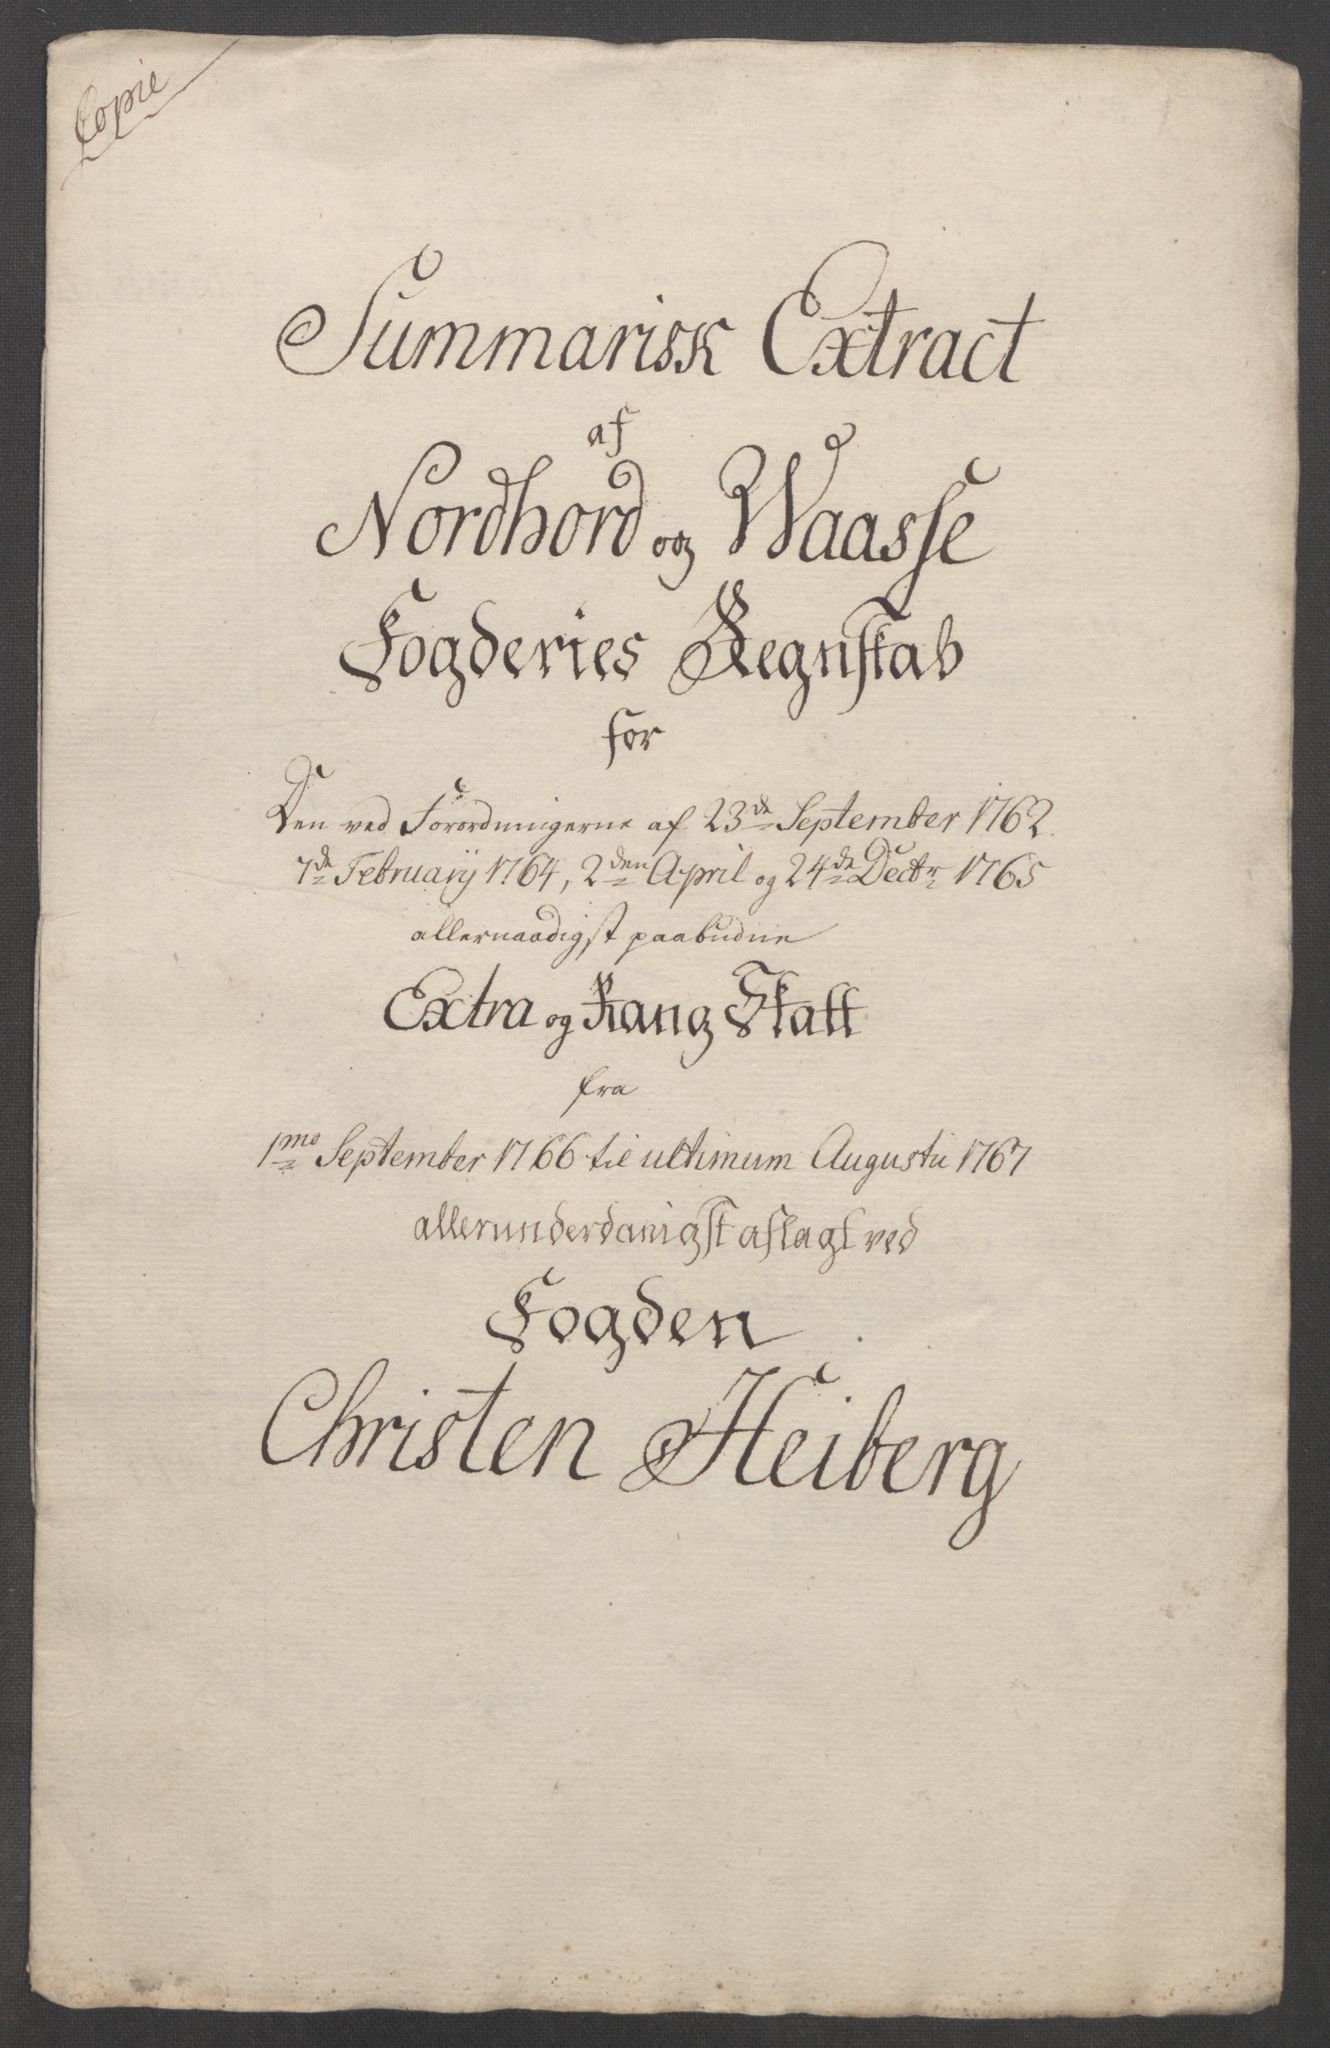 Copie
Summarisk Extract
af
Nordhord og Waasse
Fogderies Regnskab
for
Den ved Forordningerne af 23de September 1762.
7de Februarij 1764, 2den April og 24de Decbr 1765
allernaadigst paabudne
Extra og Rang Skatt
fra
1mo September 1766 til ultimum Augusti 1767
allerunderdanigst aflagt ved
Fogden
Christen Heiberg